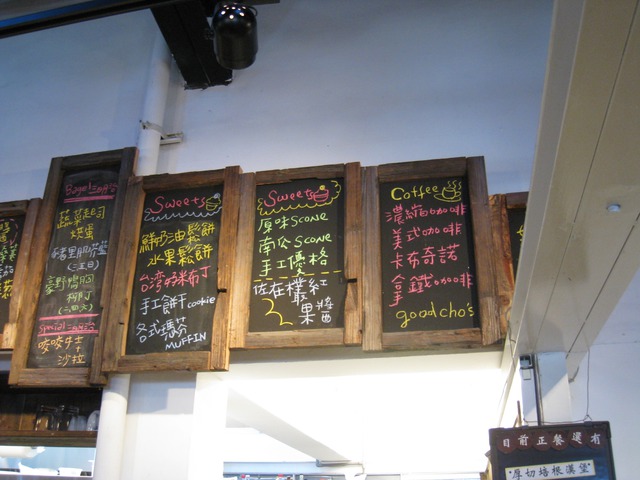 Bagel三明治
蔬菜起司
烘蛋
(三五日)
(二四六)
Special三明治
咬咬牛
沙拉
Sweets
鮮奶油鬆餅
水果鬆餅
台灣奶米布丁
手工餅干cookie
各式瑪芬
MUFFIN
Sweets
原味scone
南瓜scone
手工優格
佐在欉紅
果醬
Coffee
濃縮咖啡
美式咖啡
卡布奇諾
拿鐵咖啡
good cho's
目前正餐還有
厚切培根漢堡